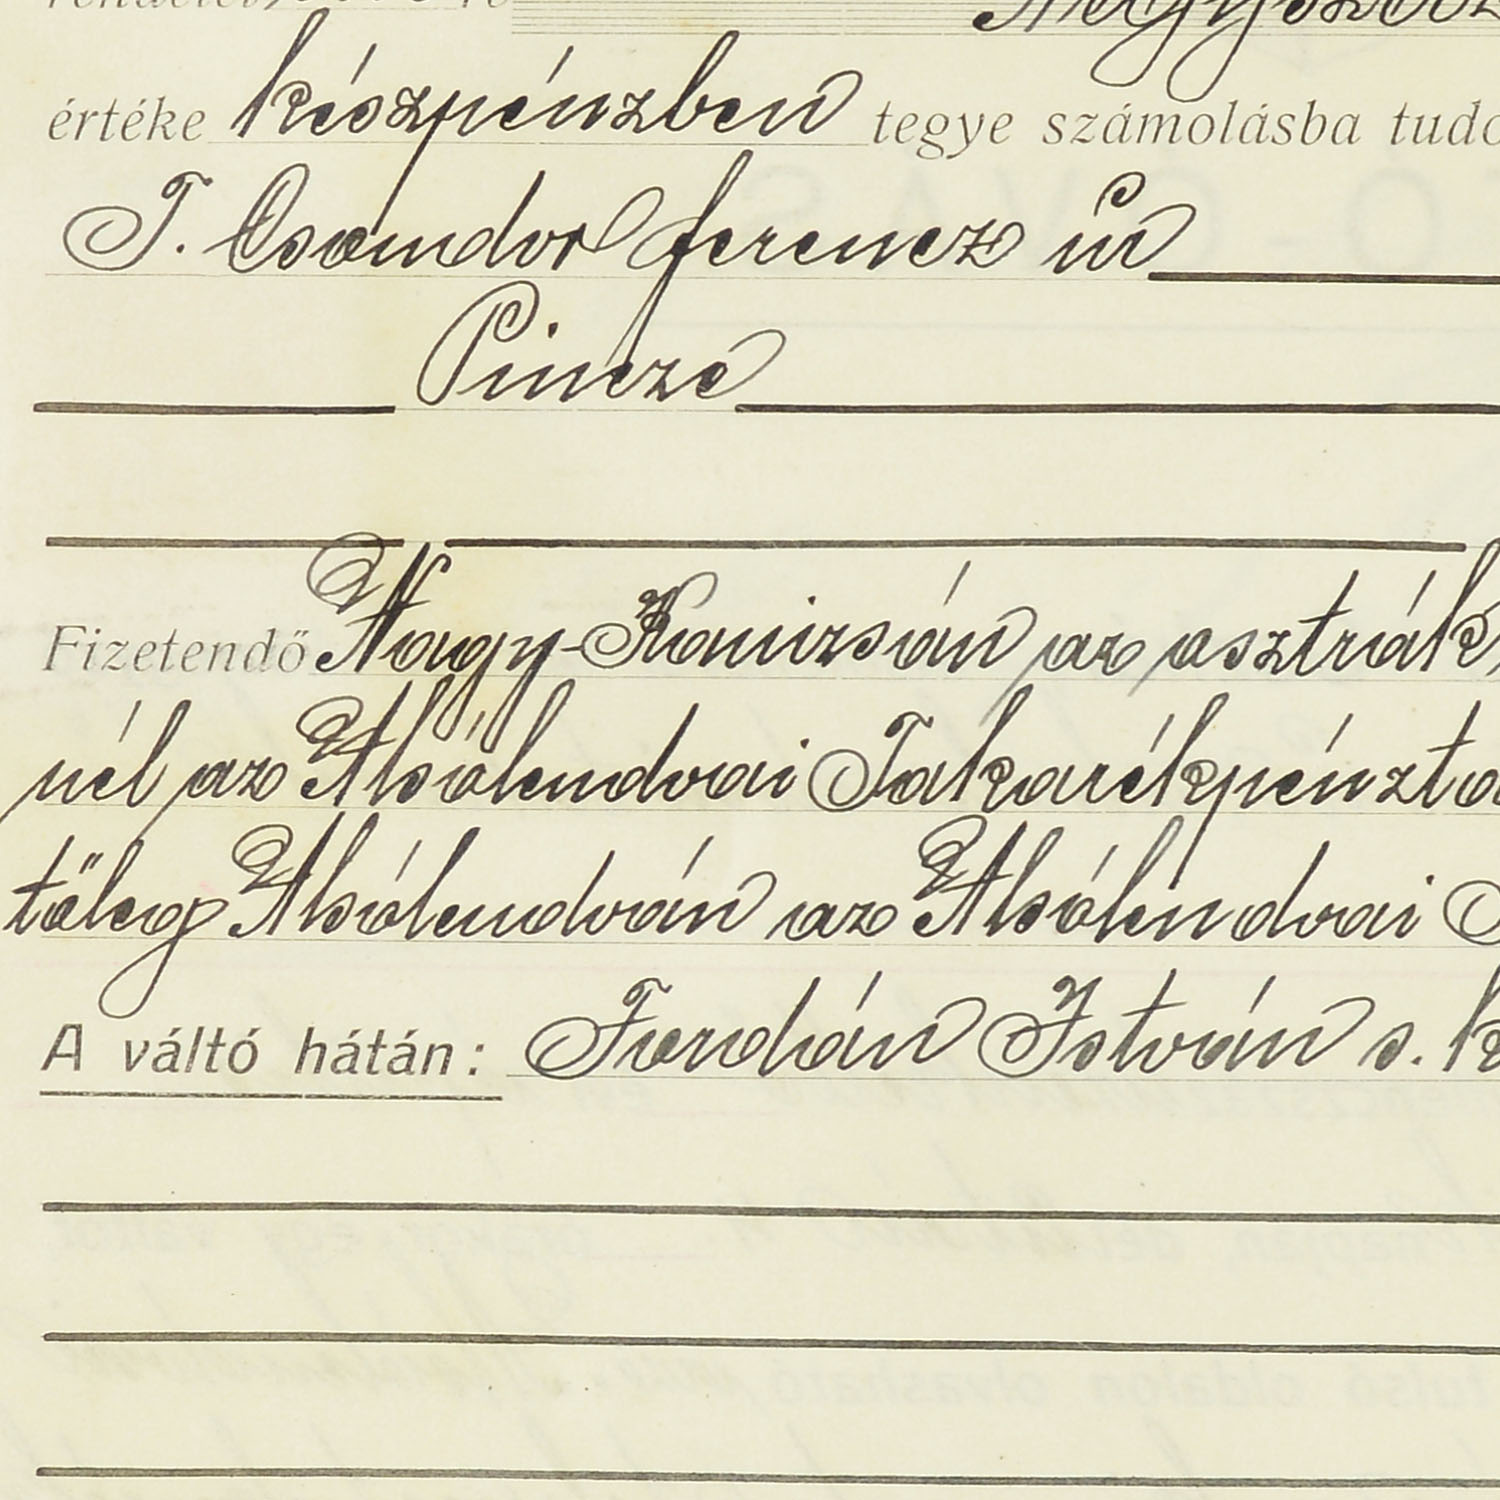 értéke készpénzben tegye számolásba
T. Csondor ferencz úr
Pincze
Fizetendő Nagy-Kanizsán az osztrák
nél az Alsólendvai Takarékpénztá
tőleg Alsólendván az Alsólendvai
A váltó hátán: Fordán István s. k